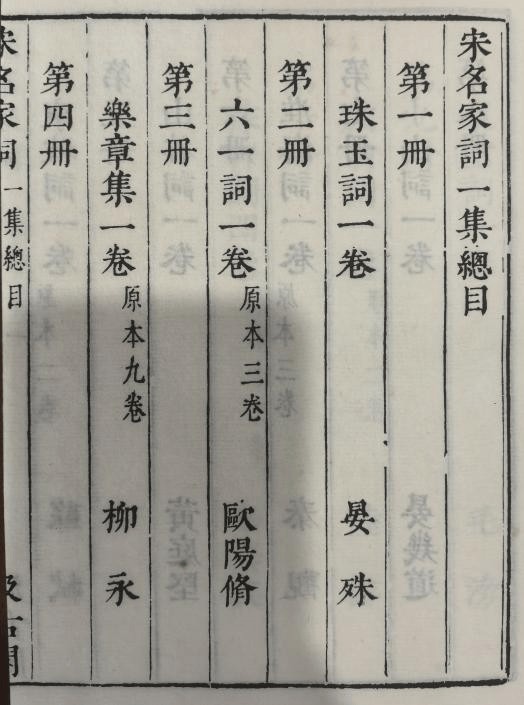 宋名家詞一集總目
第一冊
珠玉詞一卷 晏殊
第二冊
六一詞一卷 原本三卷 歐陽脩
第三冊
樂章集一卷 原本九卷 柳永
第四冊
宋名家詞 一集總目 汲古閣